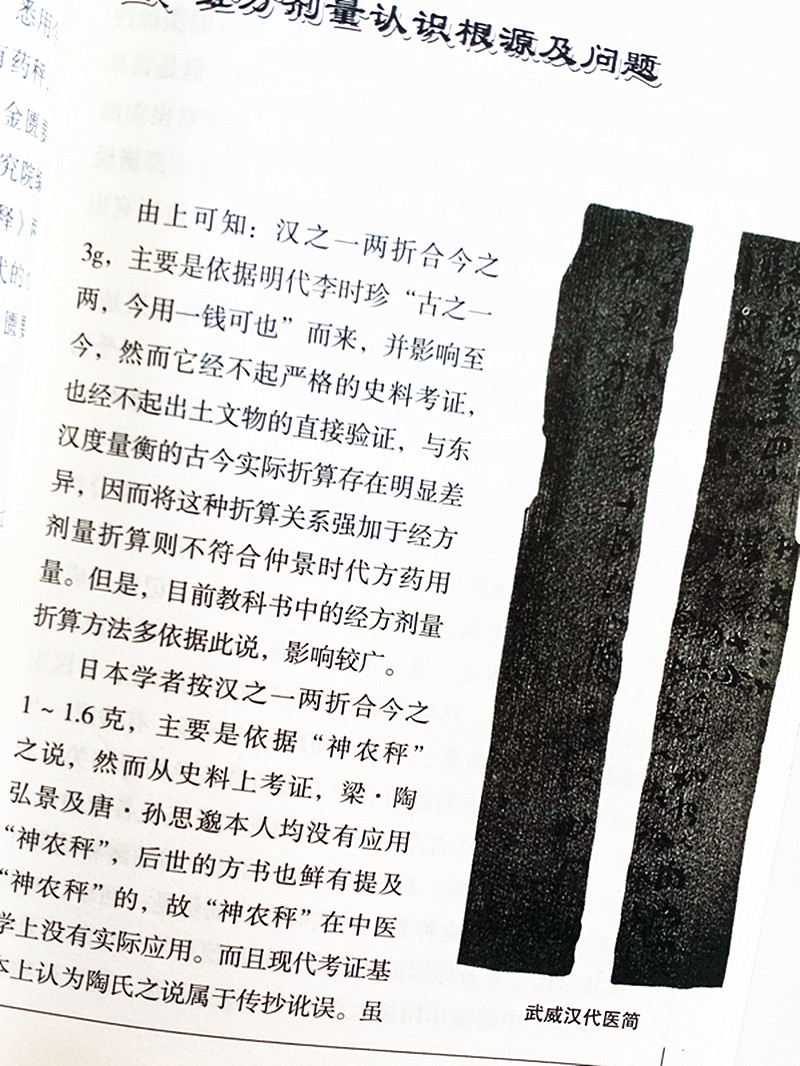 经方剂量认识根源及问题
由上可知：汉之一两折合今之
3g，主要是依据明代李时珍“古之一
两，今用一钱可也”而来，并影响至
今，然而它经不起严格的史料考证，
也经不起出土文物的直接验证，与东
汉度量衡的古今实际折算存在明显差
异，因而将这种折算关系强加于经方
剂量折算则不符合仲景时代方药用
量。但是，目前教科书中的经方剂量
折算方法多依据此说，影响较广。
日本学者按汉之一两折合今之
1～1.6克，主要是依据“神农秤”
之说，然而从史料上考证，梁·陶
弘景及唐·孙思邈本人均没有应用
“神农秤”，后世的方书也鲜有提及
“神农秤”的，故“神农秤”在中医
学上没有实际应用。而且现代考证基
本上认为陶氏之说属于传抄讹误。虽
武威汉代医简
悉用
有药秤
金匮
究院
释》
代的
匮